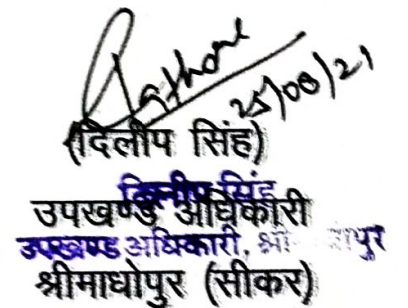 Rathore
25/08/21
(दिलीप सिंह)
दिलीप सिंह
उपखण्ड अधिकारी
उपखण्ड अधिकारी,
श्रीमाधोपुर (सीकर)